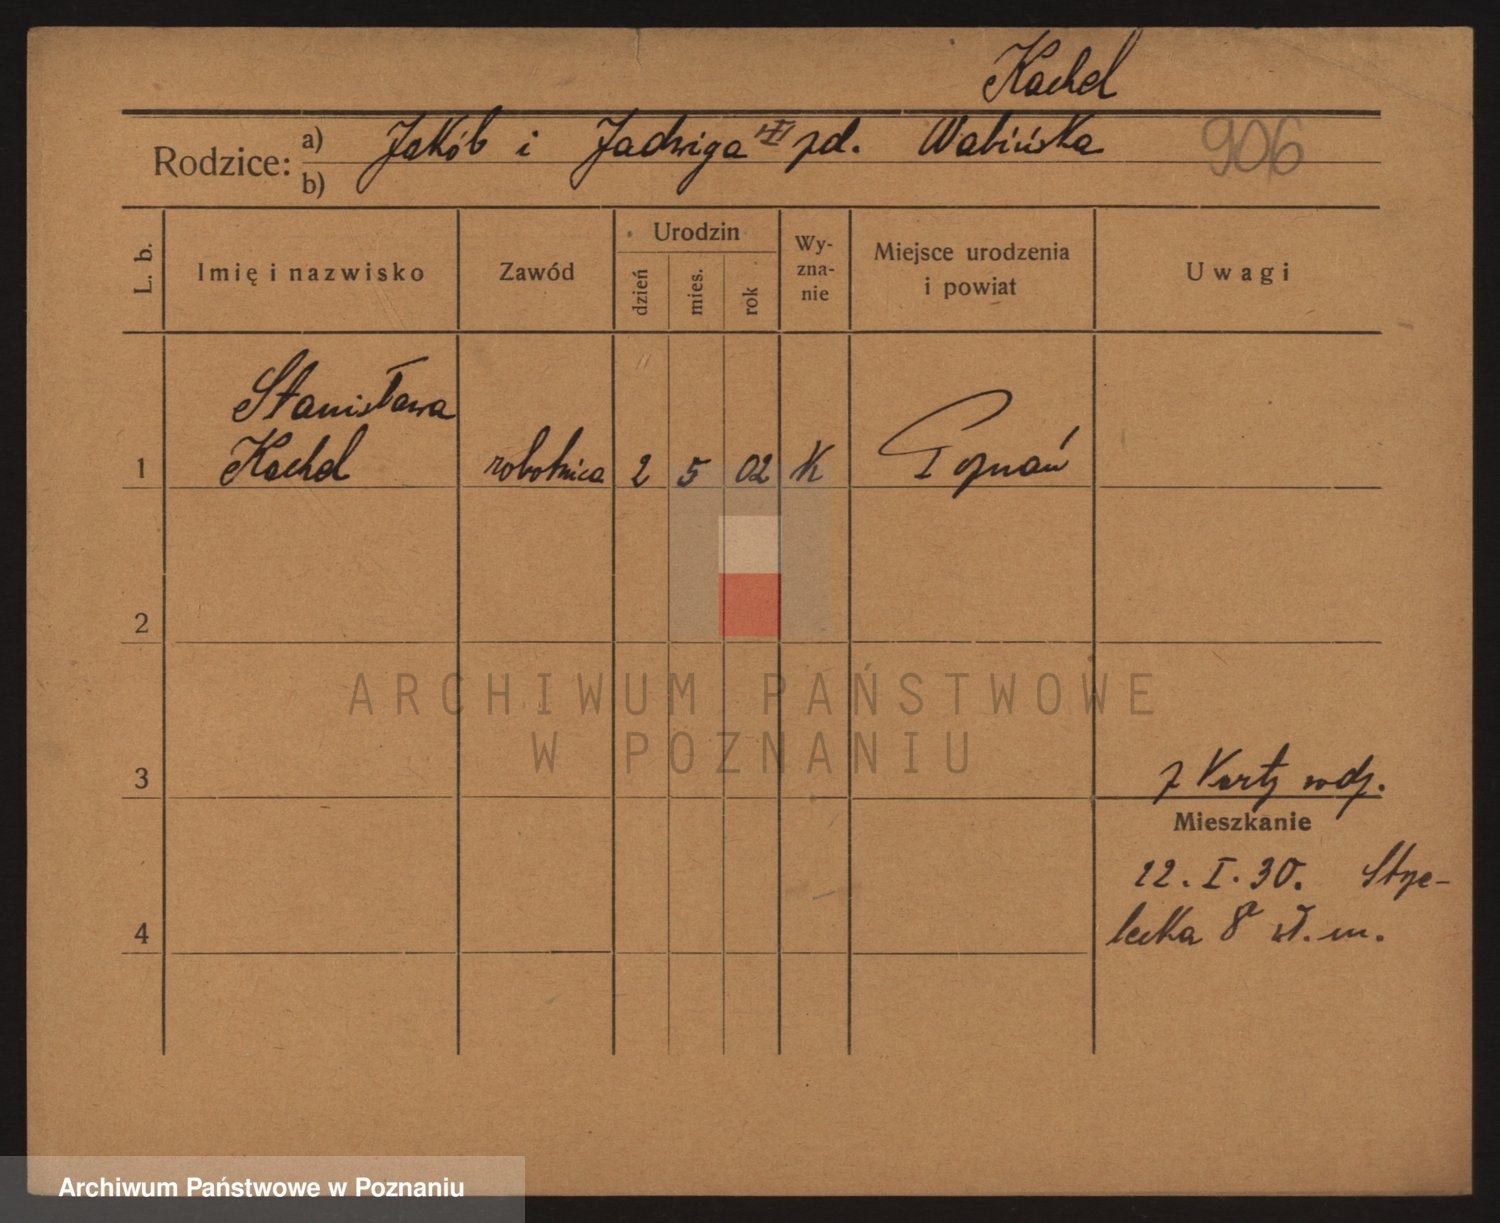 Kachel
Rodzice: a) Jakób i Jadwiga zd. Wabińska 906
b)
L. b. Imię i nazwisko Zawód Urodzin Wy-zna-nie Miejsce urodzenia i powiat Uwagi
dzień mies. rok
Stanisława
1 Kachel robotnica 2 5 02 K Poznań
2
ARCHIWUM PAŃSTWOWE
W POZNANIU
3 z Karty
Mieszkanie
22. I. 30. Strze-
lecka 8a wł. m.
4
Archiwum Państwowe w Poznaniu